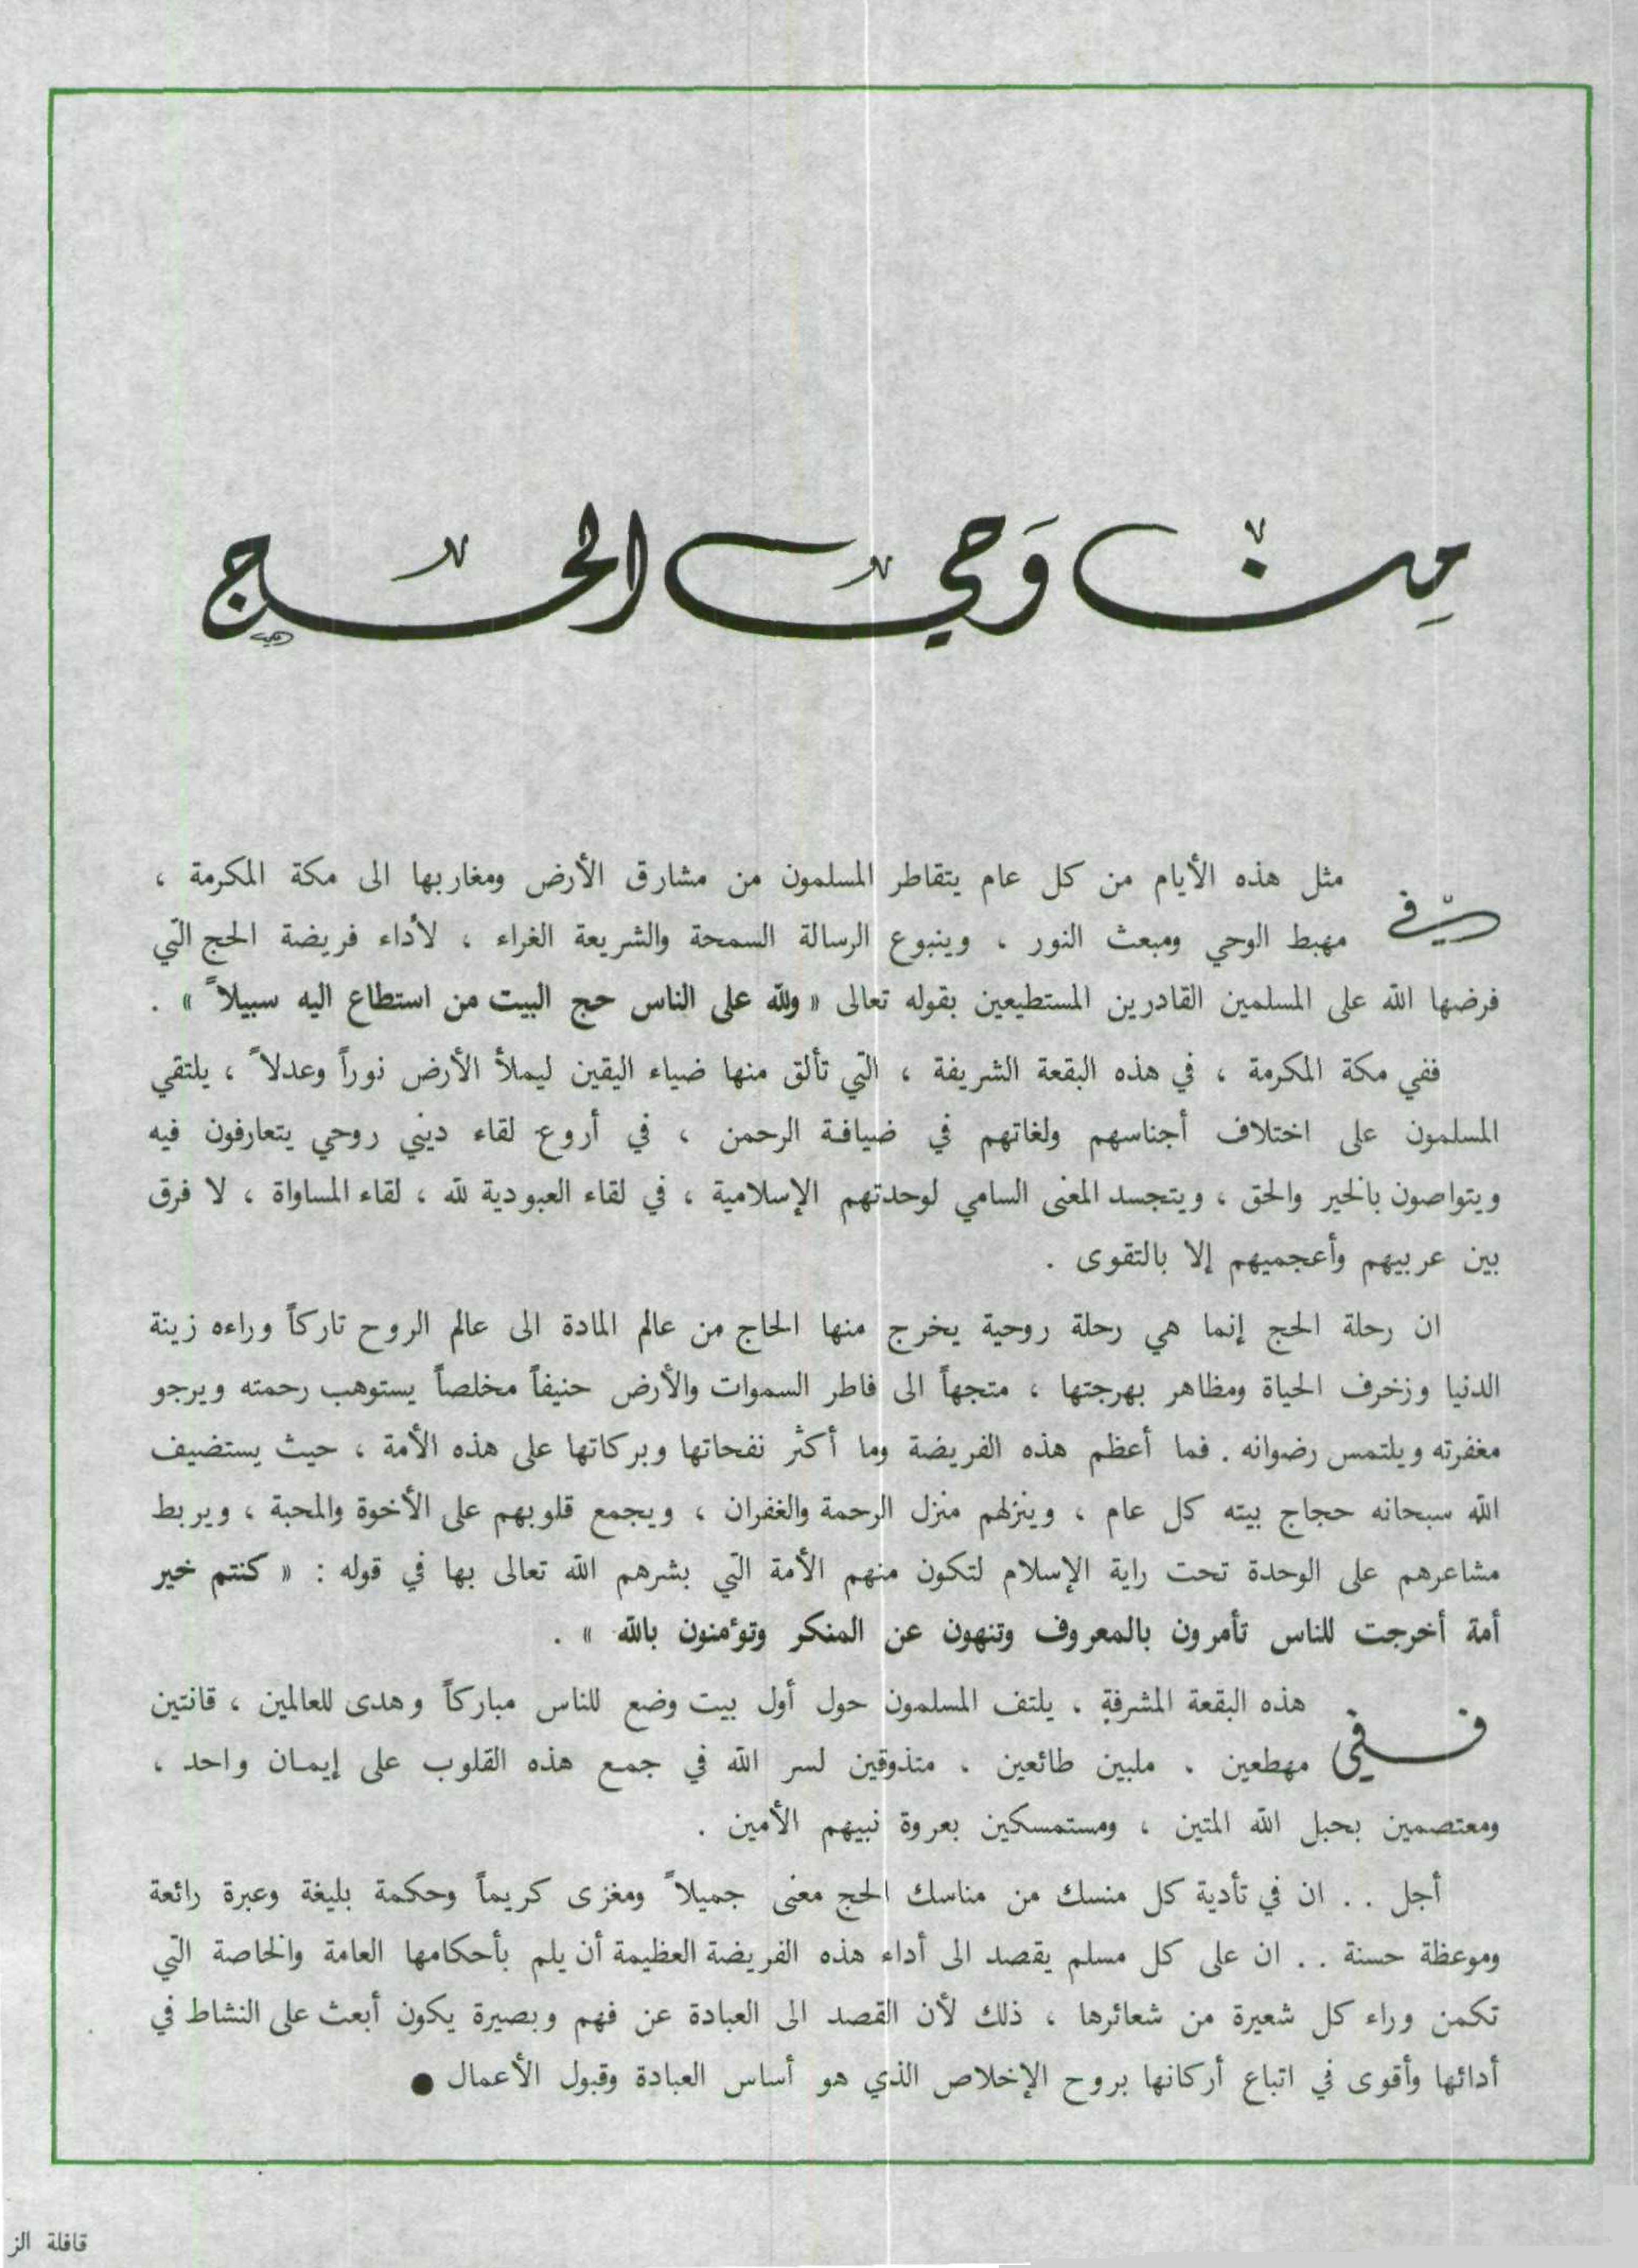 مِن وَحي الحج
في مثل هذه الأيام من كل عام يتقاطر المسلمون من مشارق الأرض ومغاربها الى مكة المكرمة ،
مهبط الوحي ومبعث النور ، وينبوع الرسالة السمحة والشريعة الغراء ، لأداء فريضة الحج التي
فرضها الله على المسلمين القادرين المستطيعين بقوله تعالى « ولله على الناس حج البيت من استطاع اليه سبيلاً » .
ففي مكة المكرمة ، في هذه البقعة الشريفة ، التي تألق منها ضياء اليقين ليملأ الأرض نوراً وعدلاً ، يلتقي
المسلمون على اختلاف أجناسهم ولغاتهم في ضيافة الرحمن ، في أروع لقاء ديني روحي يتعارفون فيه
ويتواصون بالخير والحق ، ويتجسد المعنى السامي لوحدتهم الإسلامية ، في لقاء العبودية لله ، لقاء المساواة ، لا فرق
بين عربيهم وأعجميهم إلا بالتقوى .
ان رحلة الحج إنما هي رحلة روحية يخرج منها الحاج من عالم المادة الى عالم الروح تاركاً وراءه زينة
الدنيا وزخرف الحياة ومظاهر بهرجتها ، متجهاً الى فاطر السموات والأرض حنيفاً مخلصاً يستوهب رحمته ويرجو
مغفرته ويلتمس رضوانه . فما أعظم هذه الفريضة وما أكثر نفحاتها وبركاتها على هذه الأمة ، حيث يستضيف
الله سبحانه حجاج بيته كل عام ، وينزلهم منزل الرحمة والغفران ، ويجمع قلوبهم على الأخوة والمحبة ، ويربط
مشاعرهم على الوحدة تحت راية الإسلام لتكون منهم الأمة التي بشرهم الله تعالى بها في قوله : « كنتم خير
أمة أخرجت للناس تأمرون بالمعروف وتنهون عن المنكر وتؤمنون بالله » .
ففي هذه البقعة المشرفة ، يلتف المسلمون حول أول بيت وضع للناس مباركاً وهدى للعالمين ، قانتين
مهطعين ، ملبين طائعين ، متذوقين لسر الله في جمع هذه القلوب على إيمان واحد ،
ومعتصمين بحبل الله المتين ، ومستمسكين بعروة نبيهم الأمين .
أجل . . ان في تأدية كل منسك من مناسك الحج معنى جميلاً ومغزى كريماً وحكمة بليغة وعبرة رائعة
وموعظة حسنة . . ان على كل مسلم يقصد الى أداء هذه الفريضة العظيمة أن يلم بأحكامها العامة والخاصة التي
تكمن وراء كل شعيرة من شعائرها ، ذلك لأن القصد الى العبادة عن فهم وبصيرة يكون أبعث على النشاط في
أدائها وأقوى في اتباع أركانها بروح الإخلاص الذي هو أساس العبادة وقبول الأعمال ●
قافلة الز